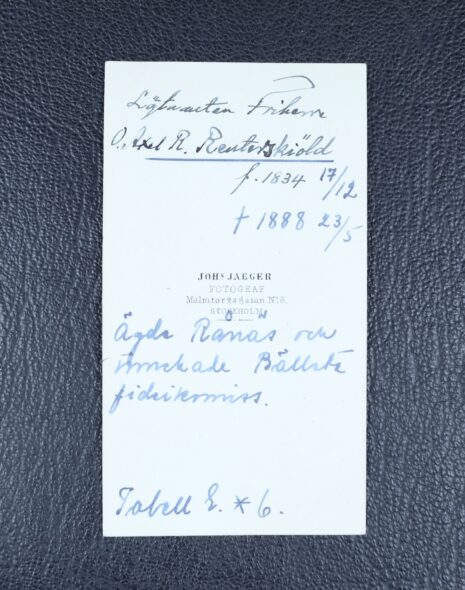 Löjtnanten Friherre
O. Axel R. Reuterskiöld
f. 1834 17/12
† 1888 23/5
JOHS JAEGER
FOTOGRAF
Malmtorgsgatan No 8.
STOCKHOLM
Ägde Rånäs och
innehade Bällsta
fideikomiss.
Tabell E. * 6.